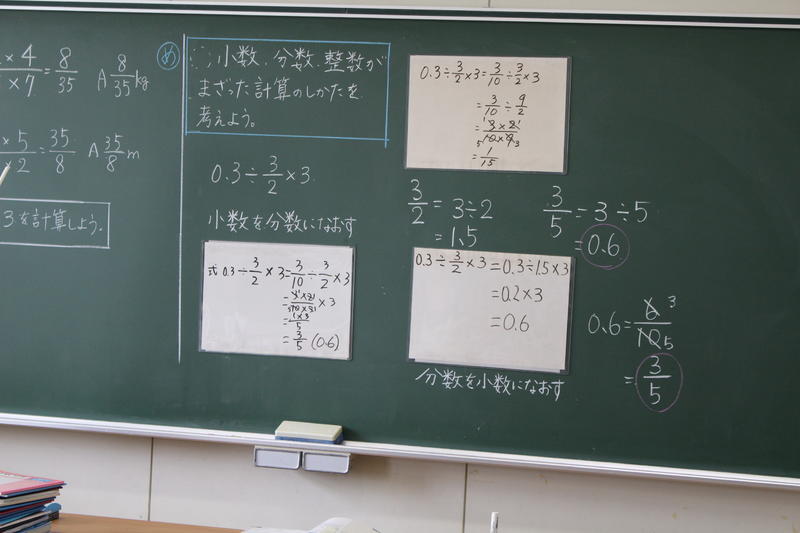 ×4/×7=8/35 A 8/35 kg
×5/×2=35/8 A 35/8 m
3を計算しよう。
め
小数、分数、整数が
まざった計算のしかたを
考えよう。
0.3÷3/2×3
小数を分数になおす
式 0.3÷3/2×3=3/10÷3/2×3
×3
=1×3/5
=3/5 (0.6)
0.3÷3/2×3=3/10÷3/2×3
=3/10÷9/2
=1/15
3/2=3÷2
=1.5
3/5=3÷5
=0.6
0.3÷3/2×3=0.3÷1.5×3
=0.2×3
=0.6
分数を小数になおす
0.6=6/10 3 5
=3/5